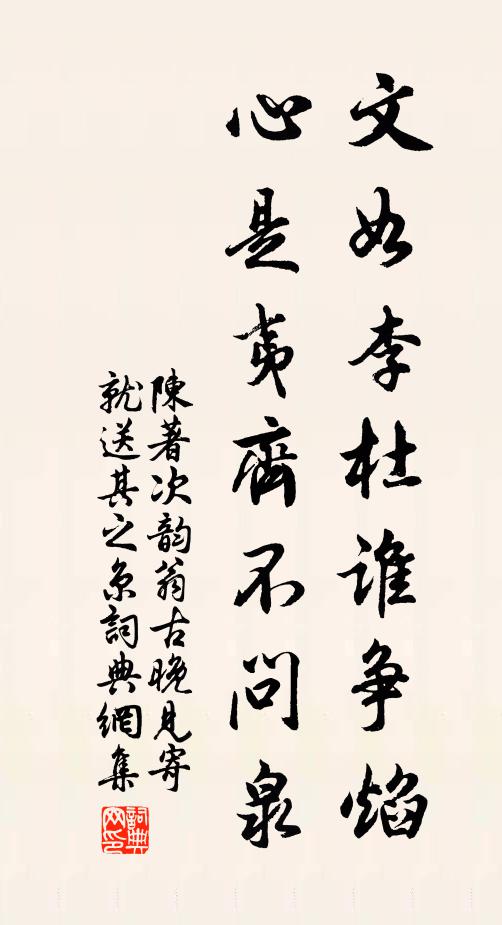 文如李杜谁争焰
心是夷齊不問泉
陳著次韵翁古晚見寄
就送其之京詞典網集
詞典網印